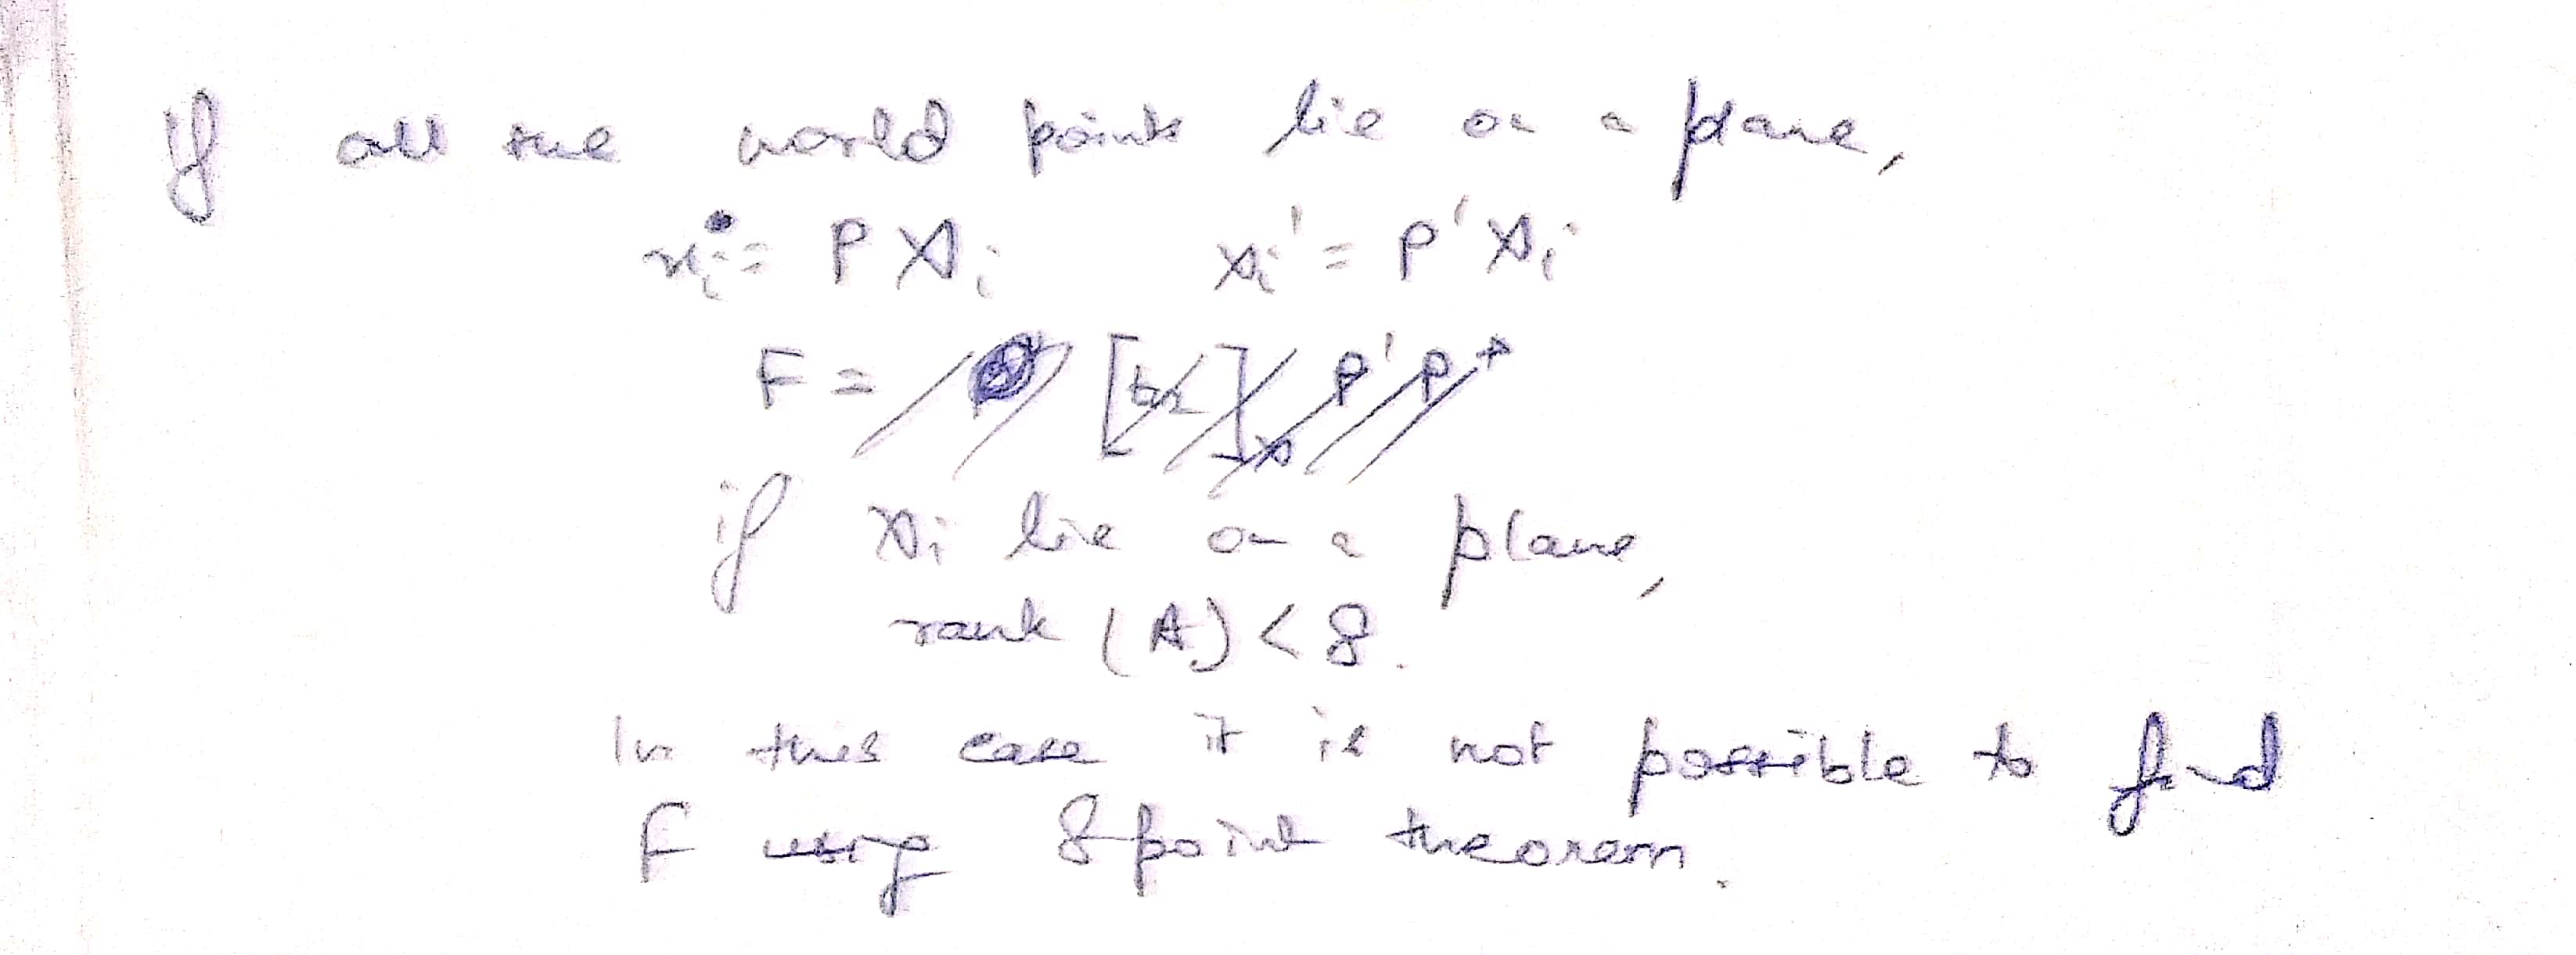 If all the world points lie on a plane,
xi = P Xi    xi' = P' Xi
F = [ ]x P' P+
if Xi lie on a plane,
rank (A) < 8.
In this case it is not possible to find
F using 8 point theorem.